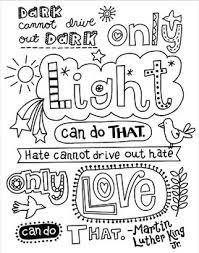 DARK
cannot drive
out DARK
only
Light
can do THAT.
Hate cannot drive out hate
only Love
can do THAT. -Martin
Luther King
Jr.